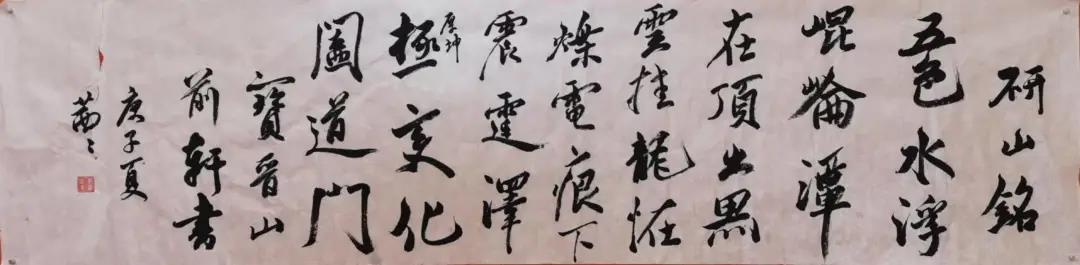 研山銘
五色水浮
崐崘潭
在頂出黑
雲挂龍恠
爍電痕下
震霆澤
厚坤
極变化
闔道門
寶晉山
前軒書
庚子夏